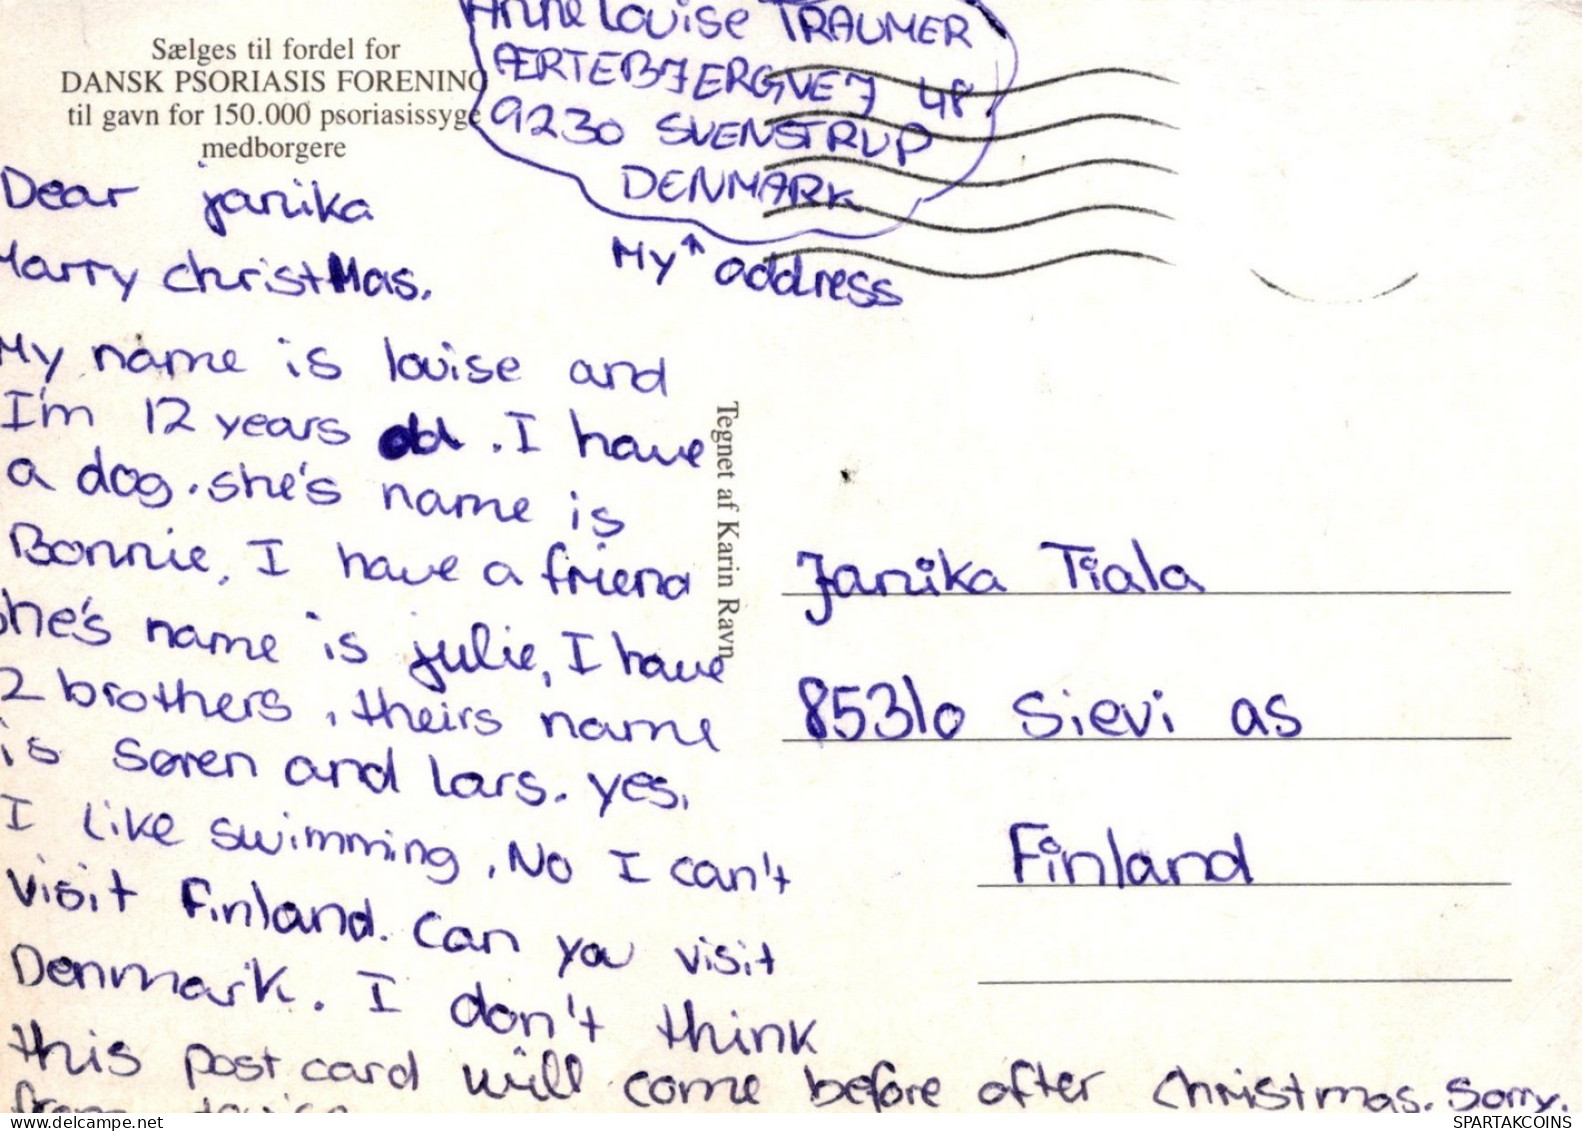 Sælges til fordel for
DANSK PSORIASIS FORENING
til gavn for 150.000 psoriasissyge
medborgere
Anne Louise TRAUMER
ÆRTEBJERGVEJ 48
9230 SVENSTRUP
DENMARK
My ↑ address
Dear janika
Marry christMas.
My name is louise and
I'm 12 years old. I have
a dog. she's name is
Bonnie, I have a friend
she's name is julie, I have
2 brothers, theirs name
is søren and lars. yes,
I like swimming, No I can't
visit Finland. Can you visit
Denmark. I don't think
this post card will come before after christmas. Sorry.
from
Tegnet af Karin Ravn
Janika Tiala
85310 Sievi as
Finland
delcampe.net
SPARTAKCOINS